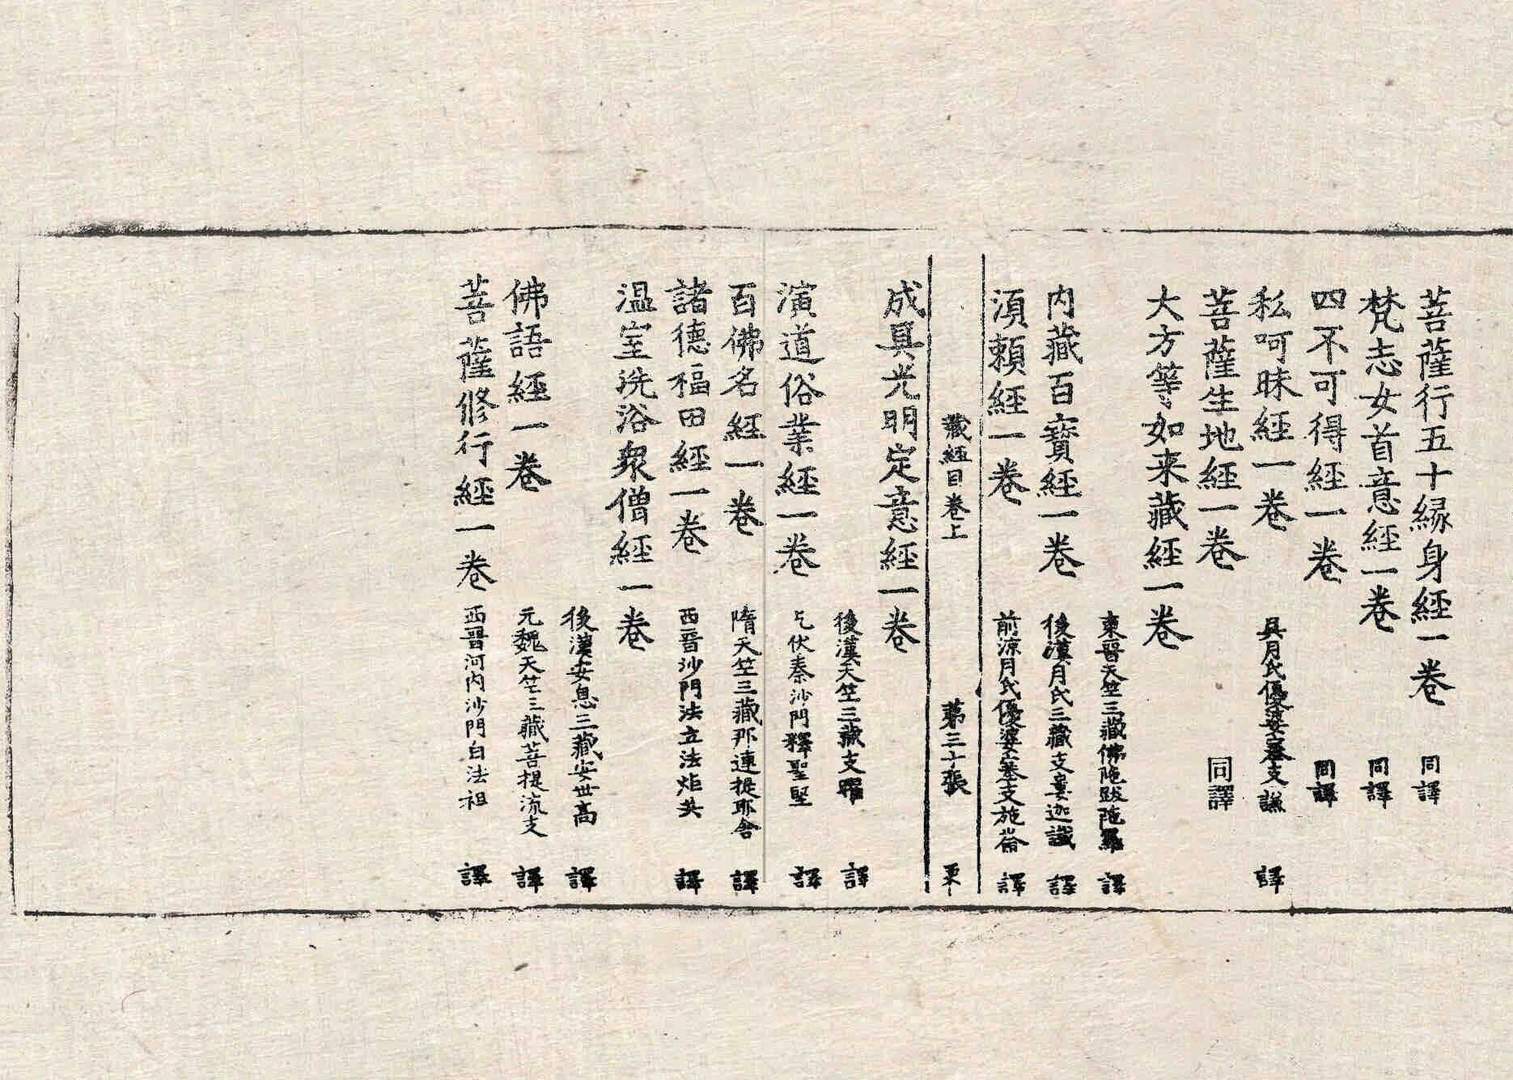 菩薩行五十縁身經一卷 同譯
梵志女首意經一卷 同譯
四不可得經一卷 同譯
私呵昧經一卷 吳月氏優婆塞支謙 譯
菩薩生地經一卷 同譯
大方等如来藏經一卷
東晉天竺三藏佛陁跋陁羅 譯
内藏百寶經一卷 後漢月氏三藏支婁迦讖 譯
湏頼經一卷 前凉月氏優婆塞支施崙 譯
藏經目卷上 苐三十張
成具光明定意經一卷
後漢天竺三藏支曜 譯
演道俗業經一卷 乞伏秦沙門釋聖堅 譯
百佛名經一卷 隋天竺三藏那連提耶舍 譯
諸德福田經一卷 西晉沙門法立法炬共 譯
温室洗浴衆僧經一卷
後漢安息三藏安世高 譯
佛語經一卷 元魏天竺三藏菩提流支 譯
菩薩修行經一卷 西晉河内沙門白法祖 譯